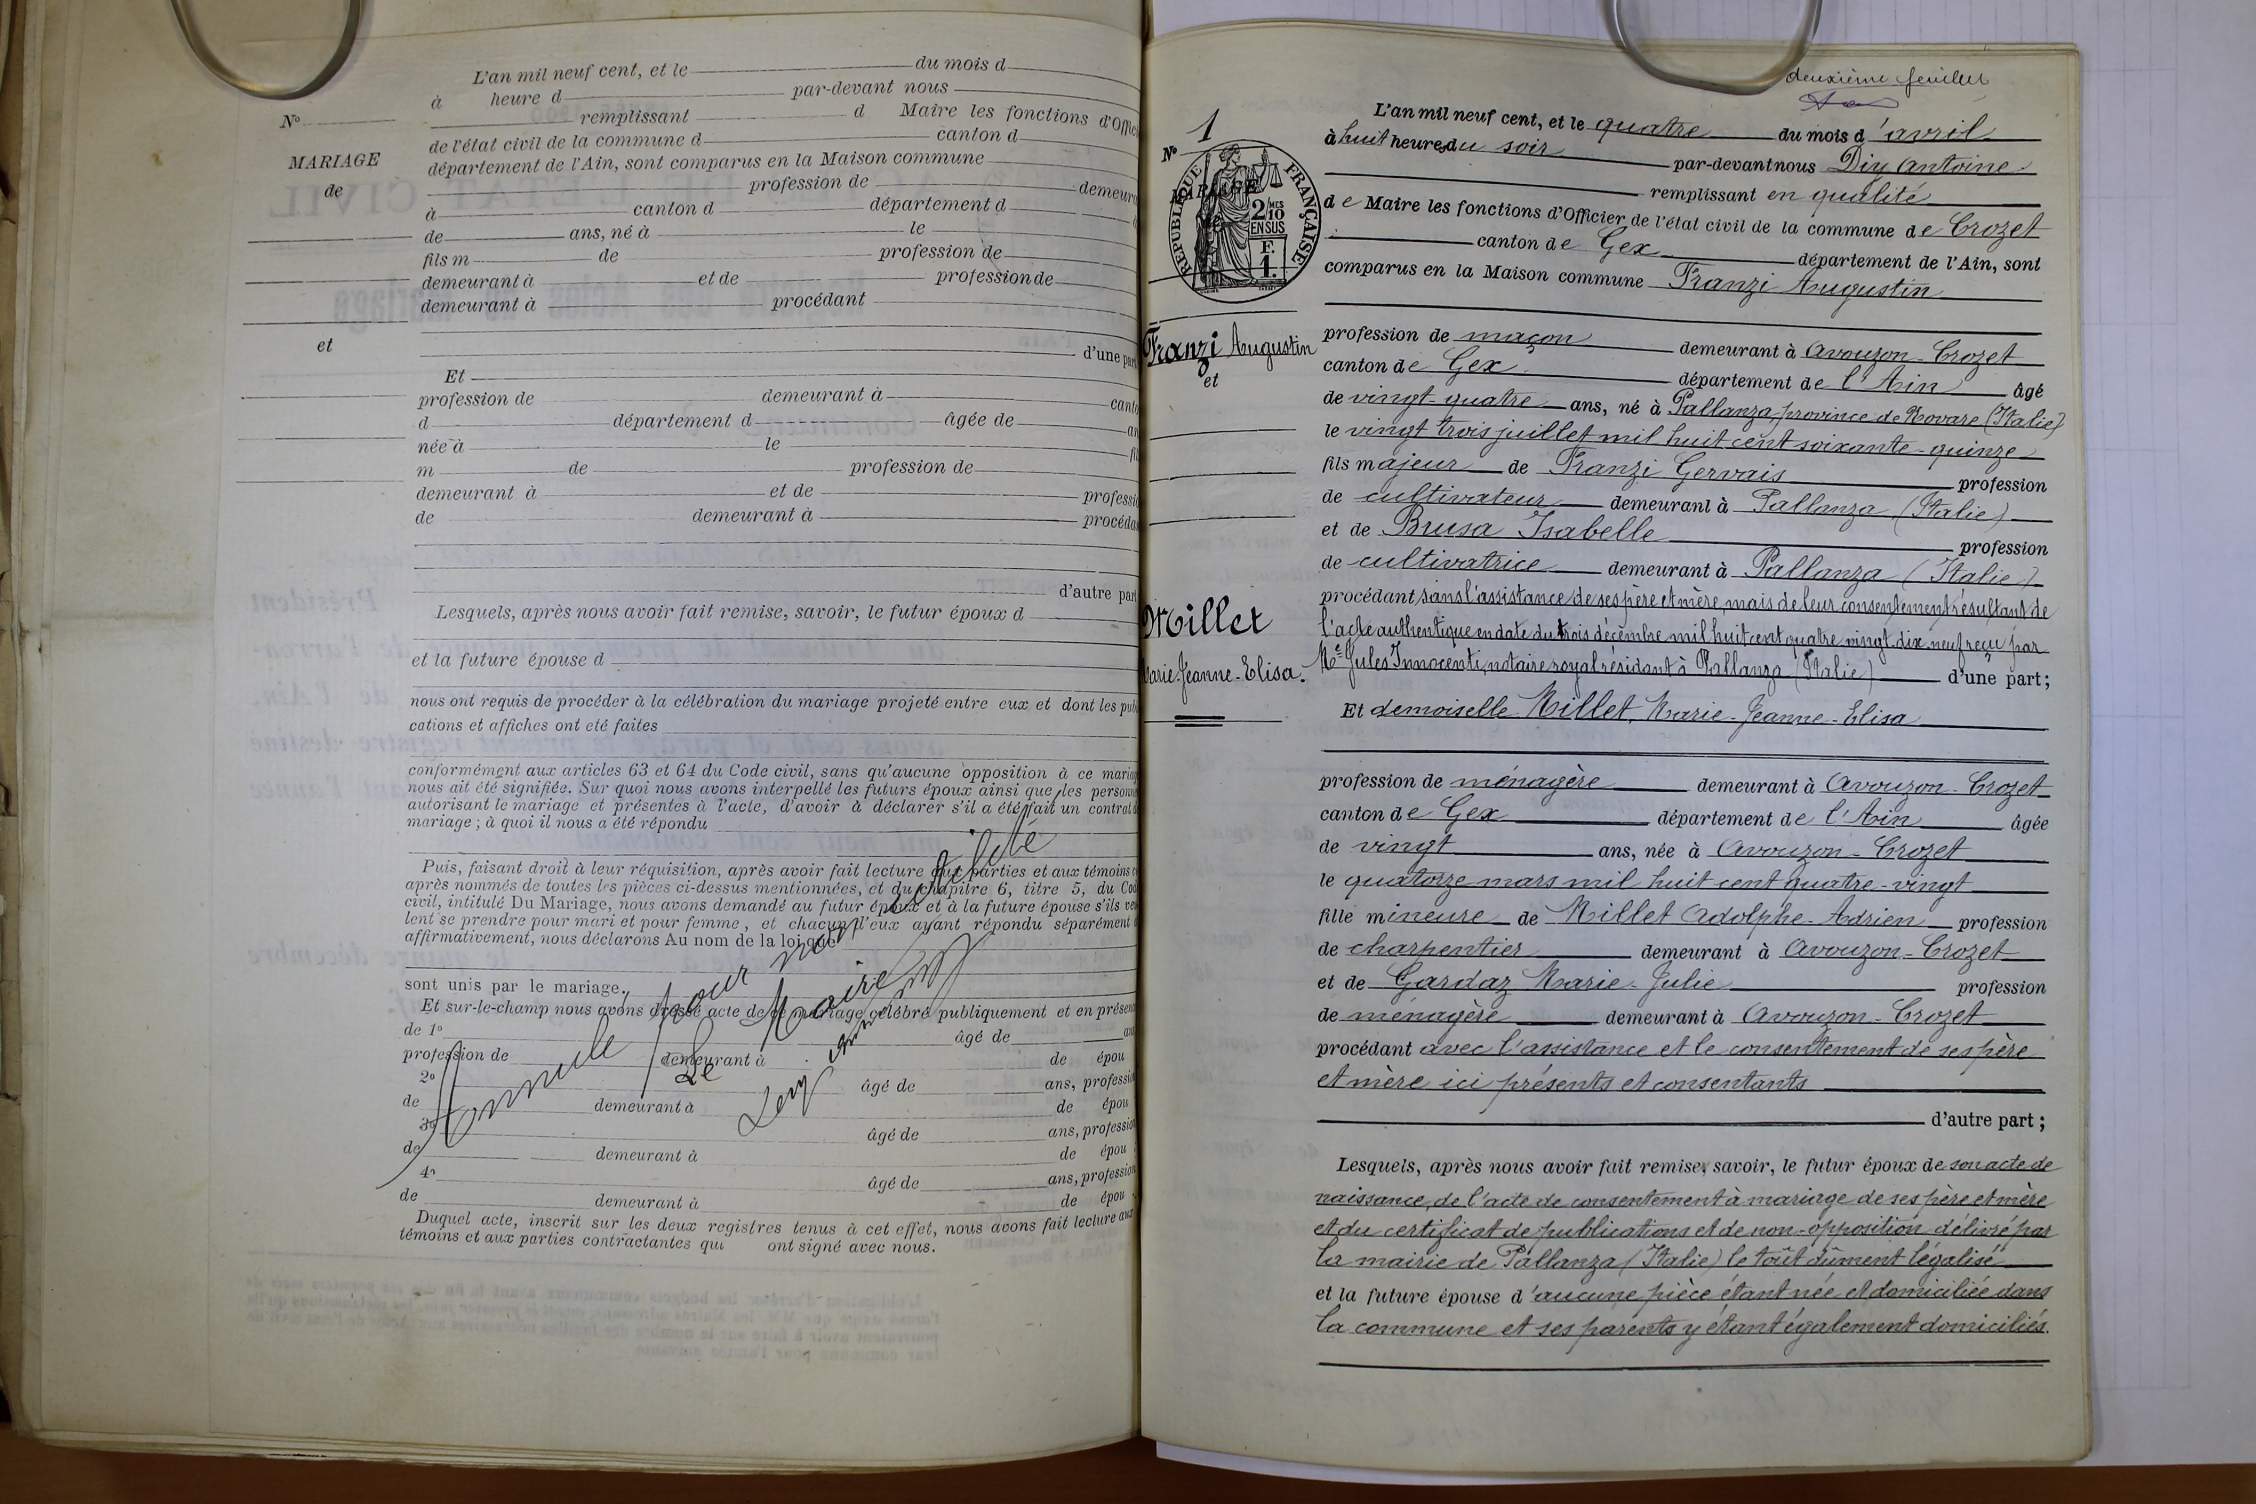 L'an mil neuf cent, et le du mois d
à heure d par-devant nous
remplissant d Maire les fonctions d'Offic
de l'état civil de la commune d canton d
département de l'Ain, sont comparus en la Maison commune
profession de demeura
à canton d département d
de ans, né à le
fils m de profession de
demeurant à et de profession de
demeurant à procédant
d'une part
Et
profession de demeurant à canto
d département d âgée de an
née à le fil
m de profession de
demeurant à et de professi
de demeurant à procéda
d'autre part
Lesquels, après nous avoir fait remise, savoir, le futur époux d
et la future épouse d
nous ont requis de procéder à la célébration du mariage projeté entre eux et dont les pub
cations et affiches ont été faites
conformément aux articles 63 et 64 du Code civil, sans qu'aucune opposition à ce mariag
nous ait été signifiée. Sur quoi nous avons interpellé les futurs époux ainsi que les personn
autorisant le mariage et présentes à l'acte, d'avoir à déclarer s'il a été fait un contrat d
mariage ; à quoi il nous a été répondu
Puis, faisant droit à leur réquisition, après avoir fait lecture aux parties et aux témoins c
après nommés de toutes les pièces ci-dessus mentionnées, et du chapitre 6, titre 5, du Cod
civil, intitulé Du Mariage, nous avons demandé au futur époux et à la future épouse s'ils veu
lent se prendre pour mari et pour femme, et chacun d'eux ayant répondu séparément e
affirmativement, nous déclarons Au nom de la loi que
sont unis par le mariage.
Et sur-le-champ nous avons dressé acte de ce mariage célébré publiquement et en présen
de 1° âgé de an
profession de demeurant à de épou
2° âgé de ans, professio
de demeurant à de épou
3° âgé de ans, professio
de demeurant à de épou
4° âgé de ans, profession
de demeurant à de épou
Duquel acte, inscrit sur les deux registres tenus à cet effet, nous avons fait lecture aux
témoins et aux parties contractantes qui ont signé avec nous.
N°
MARIAGE
de
et
Annulé pour nullité
Le Maire
deuxième feuillet
N° 1
MARIAGE
de
RÉPUBLIQUE FRANÇAISE
2/10 MES
EN SUS
F.
1.
Franzi Augustin
et
Millet
Marie-Jeanne-Elisa.
L'an mil neuf cent, et le quatre du mois d'avril
à huit heures du soir par-devant nous Diy Antoine
remplissant en qualité
de Maire les fonctions d'Officier de l'état civil de la commune de Crozet
canton de Gex département de l'Ain, sont
comparus en la Maison commune Franzi Augustin
profession de maçon demeurant à Avouzon-Crozet
canton de Gex département de l'Ain âgé
de vingt-quatre ans, né à Pallanza, province de Novare (Italie)
le vingt trois juillet mil huit cent soixante-quinze
fils majeur de Franzi Gervais profession
de cultivateur demeurant à Pallanza (Italie)
et de Brusa Isabelle profession
de cultivatrice demeurant à Pallanza (Italie)
procédant sans l'assistance de ses père et mère, mais de leur consentement résultant de
l'acte authentique en date du trois décembre mil huit cent quatre vingt-dix-neuf reçu par
Me Jules Innocenti, notaire royal résidant à Pallanza (Italie) d'une part ;
Et demoiselle Millet, Marie-Jeanne-Elisa
profession de ménagère demeurant à Avouzon-Crozet
canton de Gex département de l'Ain âgée
de vingt ans, née à Avouzon-Crozet
le quatorze mars mil huit cent quatre-vingt
fille mineure de Millet Adolphe-Adrien profession
de charpentier demeurant à Avouzon-Crozet
et de Gardaz Marie-Julie profession
de ménagère demeurant à Avouzon-Crozet
procédant avec l'assistance et le consentement de ses père
et mère ici présents et consentants
d'autre part ;
Lesquels, après nous avoir fait remise, savoir, le futur époux de son acte de
naissance, de l'acte de consentement à mariage de ses père et mère
et du certificat de publications et de non-opposition délivré par
la mairie de Pallanza (Italie) le tout dûment légalisé
et la future épouse d'aucune pièce étant née et domiciliée dans
la commune et ses parents y étant également domiciliés.